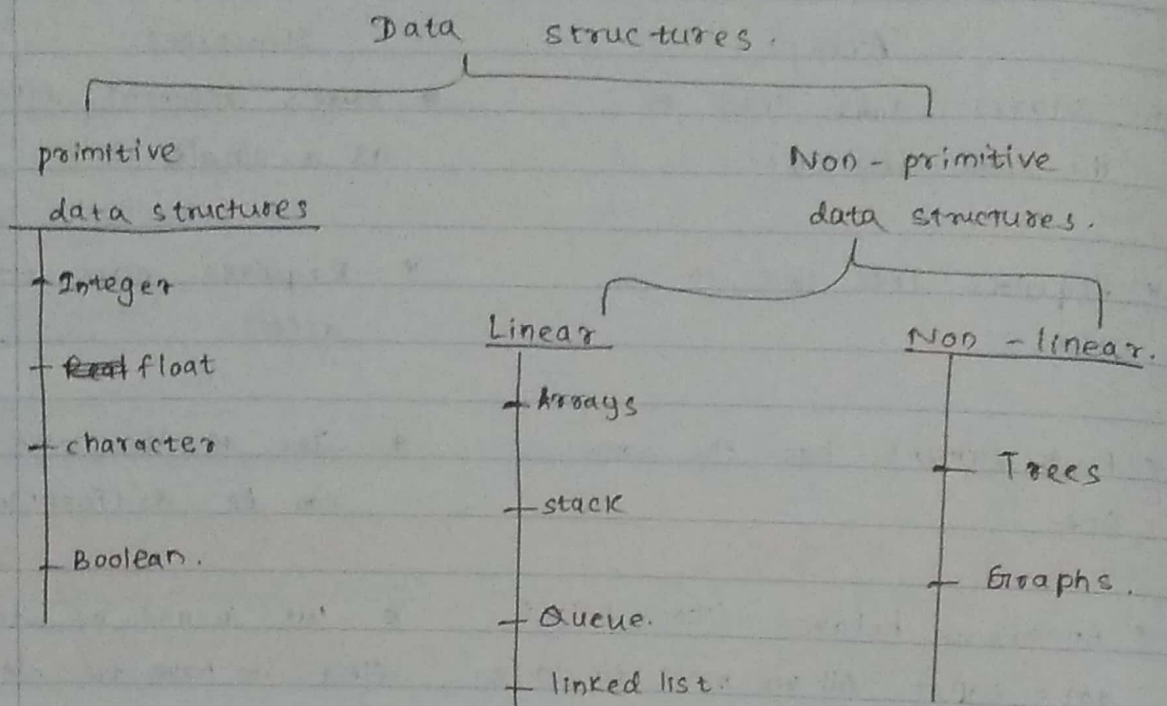 Data structures.
primitive
data structures
Integer
float
character
Boolean.
Non - primitive
data structures.
Linear
Arrays
stack
Queue.
linked list.
Non - linear.
Trees
Graphs.